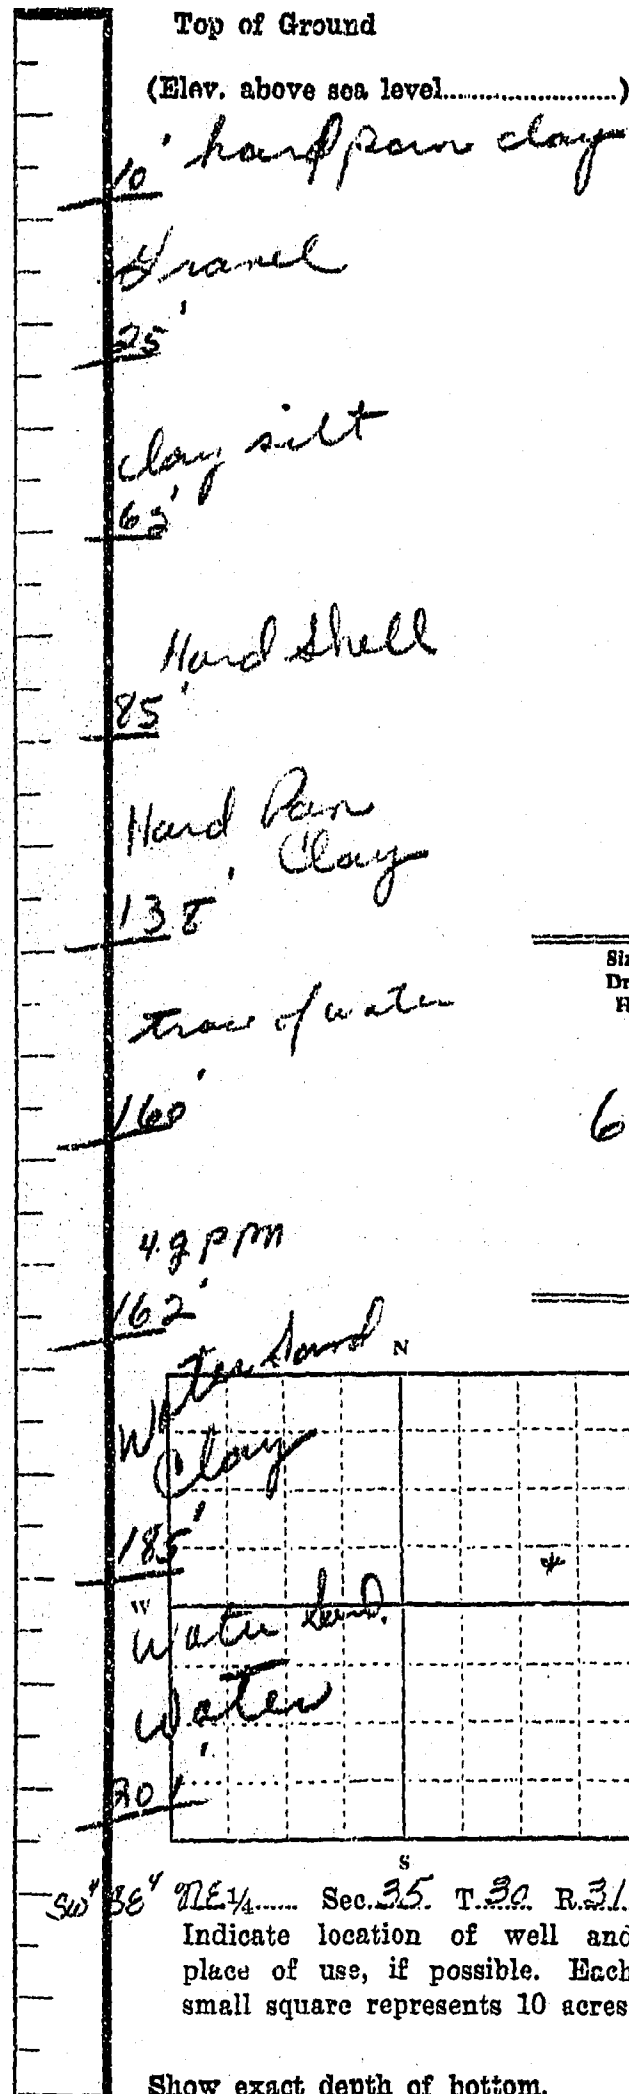 Top of Ground
(Elev. above sea level......................)
hard pan clay
10'
Gravel
25'
clay silt
65'
Hard Shell
85'
Hard Pan
Clay
138'
trace of water
160'
6
4 g p m
162'
Water Sand
N
Clay
185'
W
Water Sand.
Water
201'
S
SW¼ SE¼ NE¼...... Sec. 35. T. 30 R. 31.
Indicate location of well and
place of use, if possible. Each
small square represents 10 acres
Show exact depth of bottom.